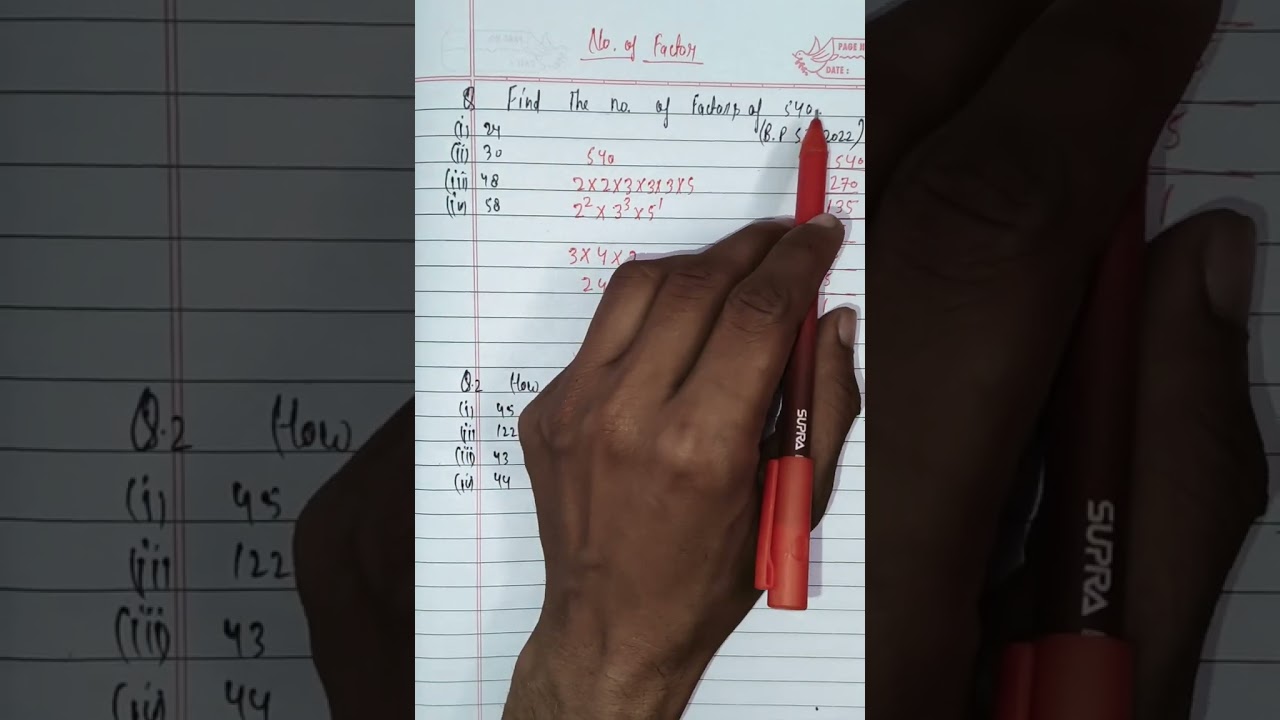 No. of Factor
PAGE N
DATE :
Q Find The no. of Factors of 540.
(B.P S 2022)
(i) 24
(ii) 30
(iii) 48
(iv) 58
540
2×2×3×3×3×5
2² × 3³ × 5¹
3×4×2
24
540
270
135
5
1
Q.2 How
(i) 45
(ii) 122
(iii) 43
(iv) 44
SUPRA